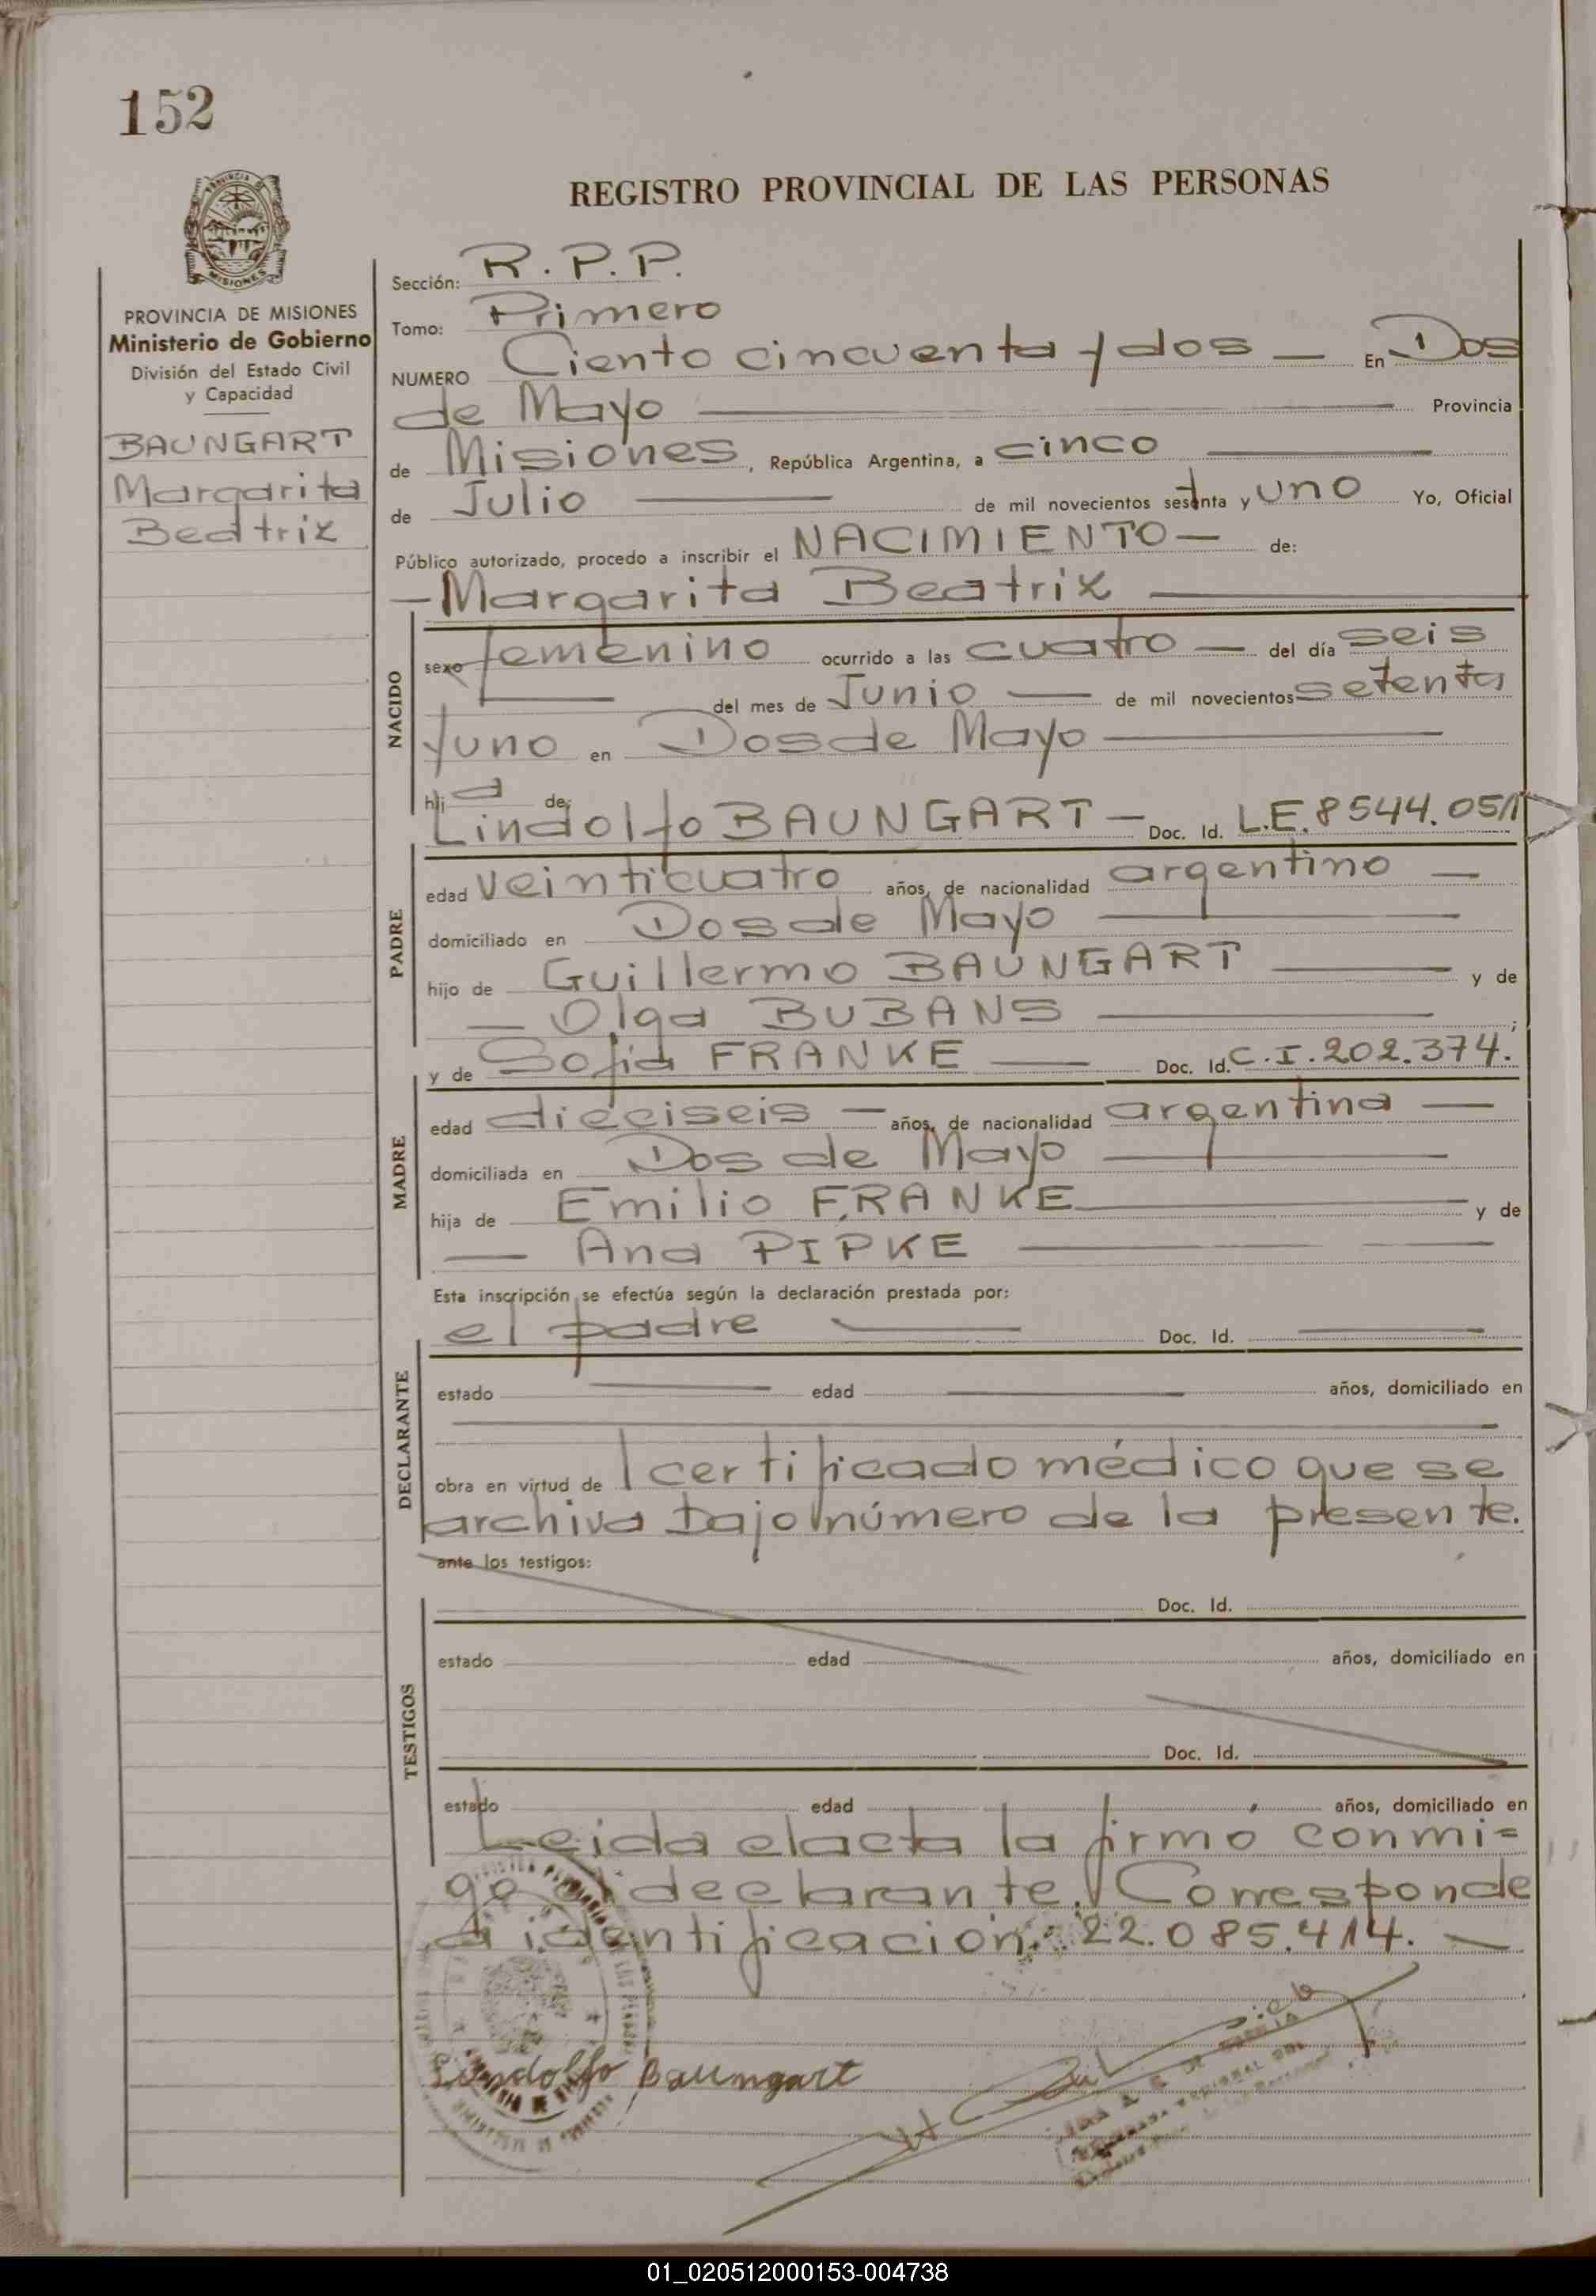 152
REGISTRO PROVINCIAL DE LAS PERSONAS
PROVINCIA DE MISIONES
Ministerio de Gobierno
División del Estado Civil
y Capacidad
BAUNGART
Margarita
Beatriz
Sección: R.P.P.
Tomo: Primero
NUMERO Ciento cincuenta y dos — En Dos
de Mayo — Provincia
de Misiones, República Argentina, a cinco —
de Julio — de mil novecientos setenta y uno Yo, Oficial
Público autorizado, procedo a inscribir el NACIMIENTO — de:
— Margarita Beatriz —
NACIDO
sexo femenino ocurrido a las cuatro — del día seis
— del mes de Junio — de mil novecientos setenta
y uno en Dos de Mayo —
hij a de:
Lindolfo BAUNGART — Doc. Id. L.E. 8544.051
PADRE
edad veinticuatro años, de nacionalidad argentino —
domiciliado en Dos de Mayo —
hijo de Guillermo BAUNGART — y de
— Olga BUBANS — ;
y de Sofia FRANKE — Doc. Id. C.I. 202.374.
MADRE
edad dieciseis — años, de nacionalidad argentina —
domiciliada en Dos de Mayo —
hija de Emilio FRANKE — y de
— Ana PIPKE —
Esta inscripción se efectúa según la declaración prestada por:
el padre — Doc. Id. —
DECLARANTE
estado — edad — años, domiciliado en
—
obra en virtud de 1 certificado médico que se
archiva bajo número de la presente.
ante los testigos:
TESTIGOS
Doc. Id.
estado edad años, domiciliado en
Doc. Id.
estado edad años, domiciliado en
Leida el acta la firmo conmi=
go el declarante. Corresponde
a identificación: 22.085.414. —
Lindolfo Baumgart
01_020512000153-004738